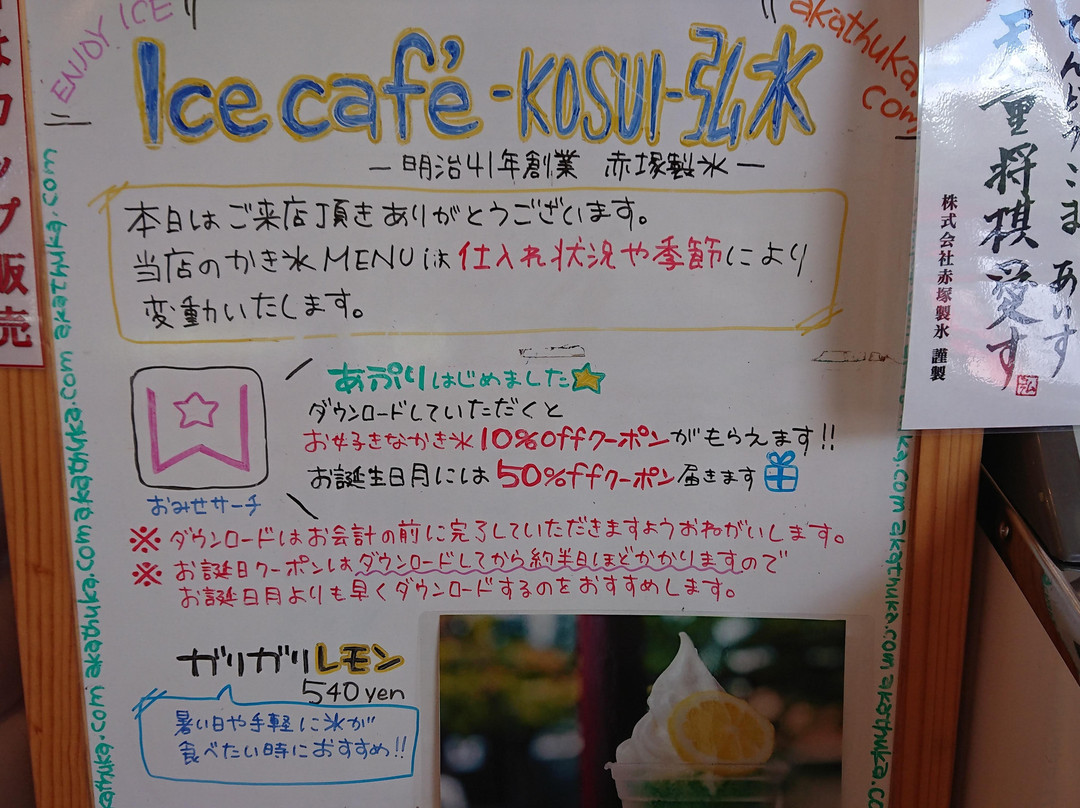 ENJOY ICE
akathuka.
com
Ice café -KOSUI-弘水
― 明治41年創業 赤塚製氷 ―
本日はご来店頂きありがとうございます。
当店のかき氷MENUは仕入れ状況や季節により
変動いたします。
あぷりはじめました
ダウンロードしていただくと
お好きなかき氷10%offクーポンがもらえます!!
お誕生日月には50%offクーポン届きます
おみせサーチ
※ ダウンロードはお会計の前に完了していただきますようおねがいします。
※ お誕日クーポンはダウンロードしてから約半日ほどかかりますので
お誕日月よりも早くダウンロードするのをおすすめします。
ガリガリレモン
540yen
暑い日や手軽に氷が
食べたい時におすすめ!!
カップ販売
天童将棋愛す
株式会社赤塚製氷 謹製
akathuka.com akathuka.com akathuka.com akathuka.com akathuka.com
.com akathuka.com akathuka.com